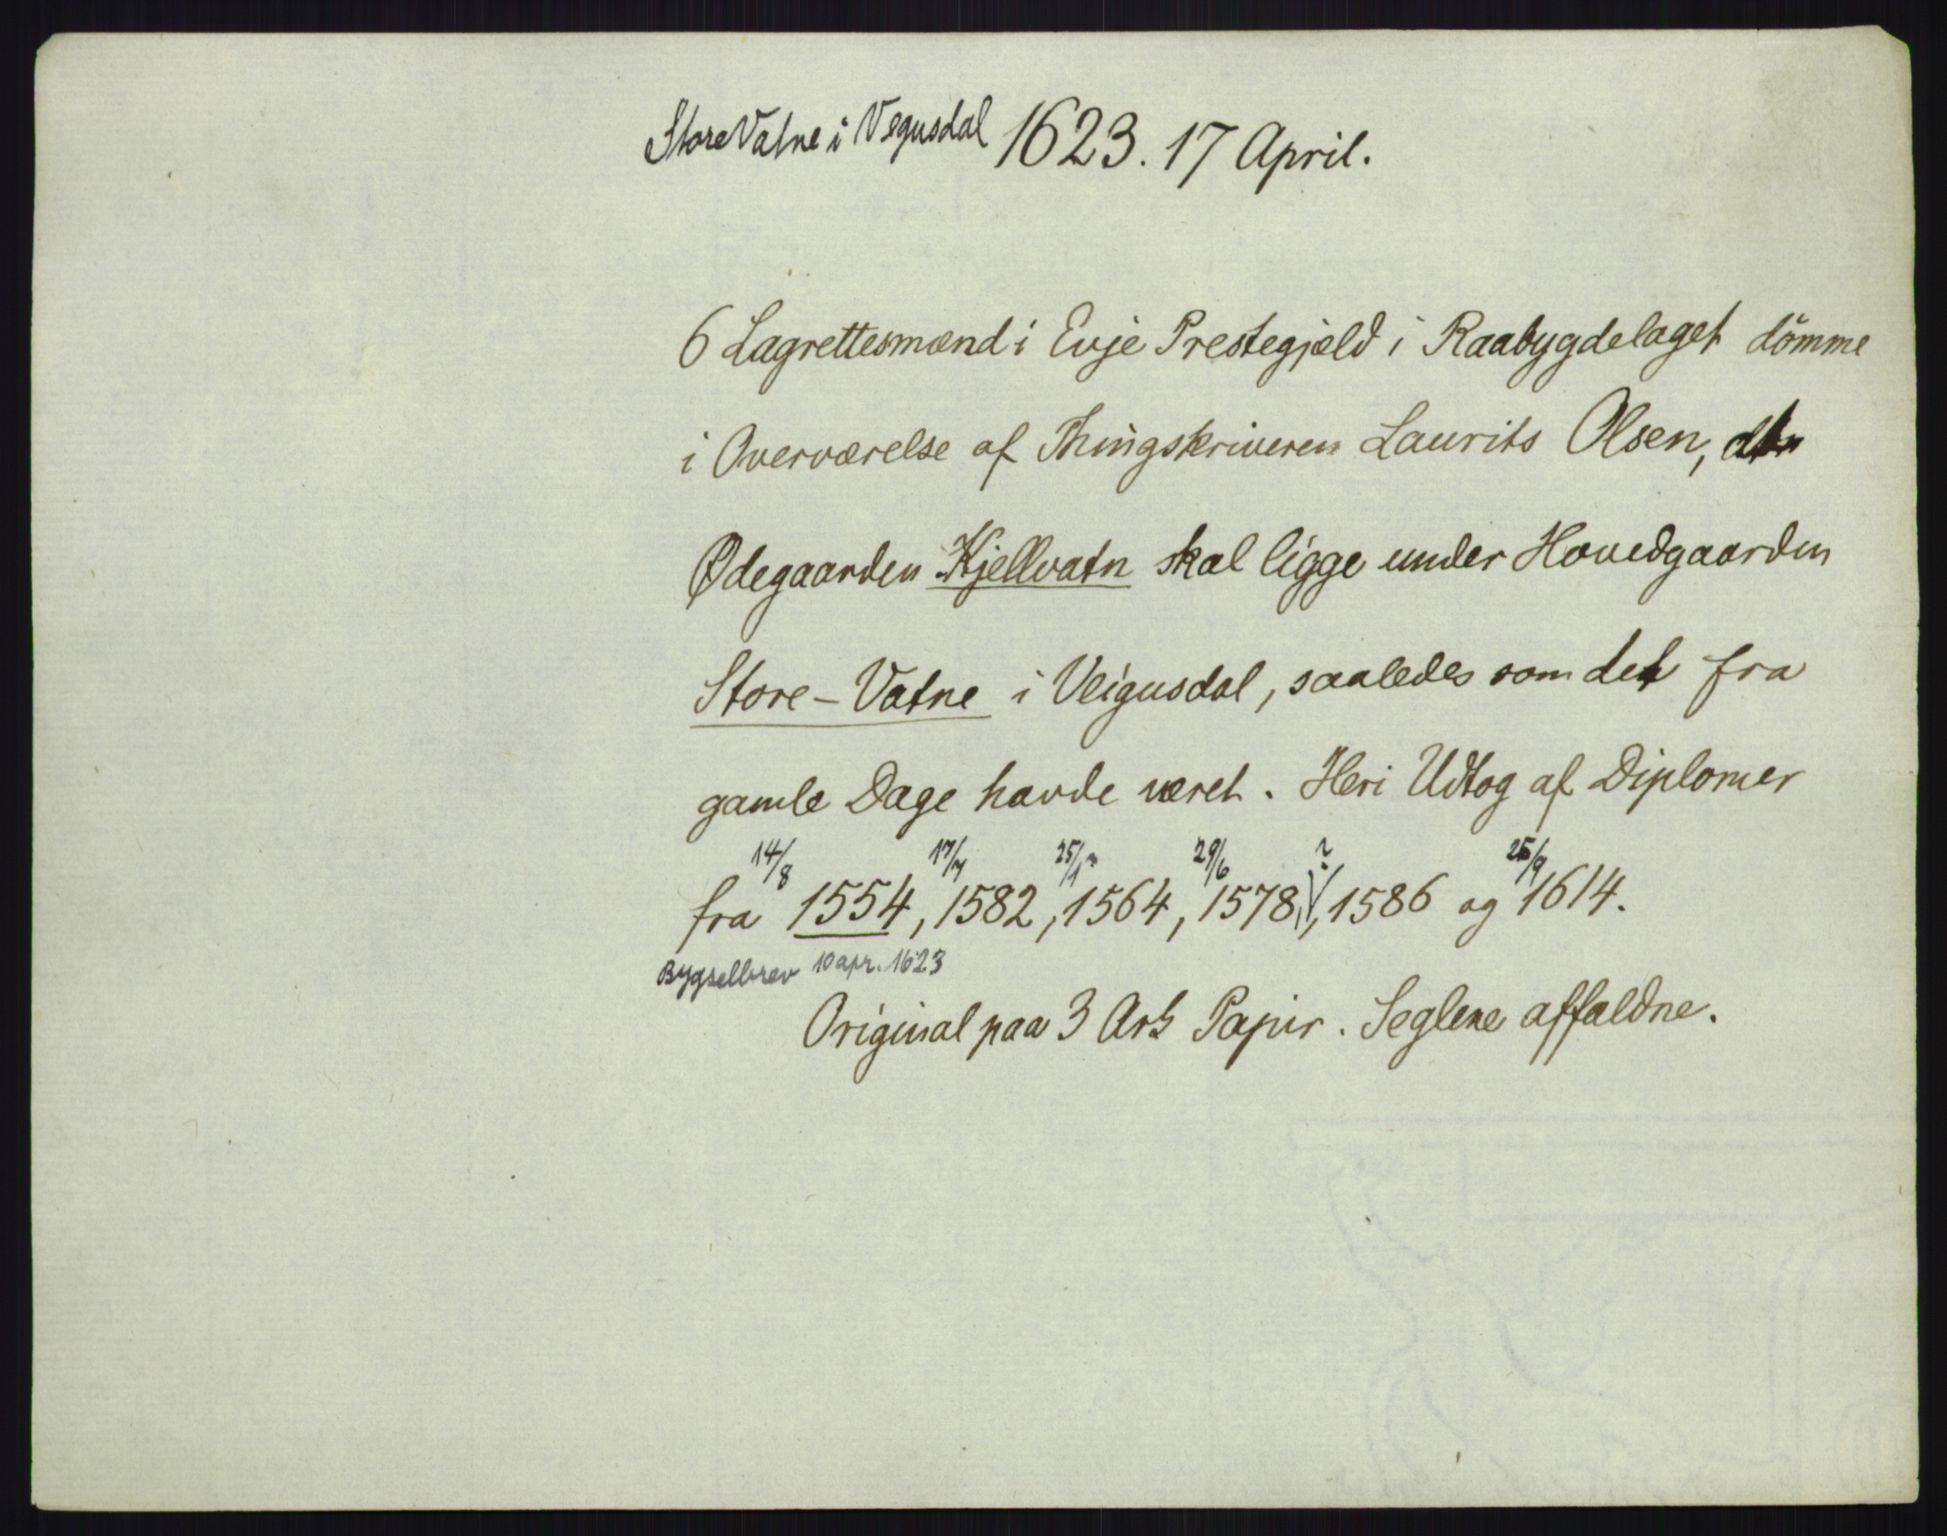 Store Vatne i Vegusdal 1623. 17 April.
6 Lagrettesmænd i Evje Prestegjæld i Raabygdelaget dömme
i Overværelse af Thingskriveren Laurits Olsen,
Ødegaarden Kjellvatn skal ligge under Hovedgaarden
Store-Vatne i Veigusdal, saaledes som det fra
gamle Dage havde været. Heri Udtog af Diplomer
14/8 17/7 25/1? 29/6 ? 25/9
fra 1554, 1582, 1564, 1578, 1586 og 1614.
Bygselbrev 10 apr. 1623
Original paa 3 Ark Papir. Seglene affaldne.